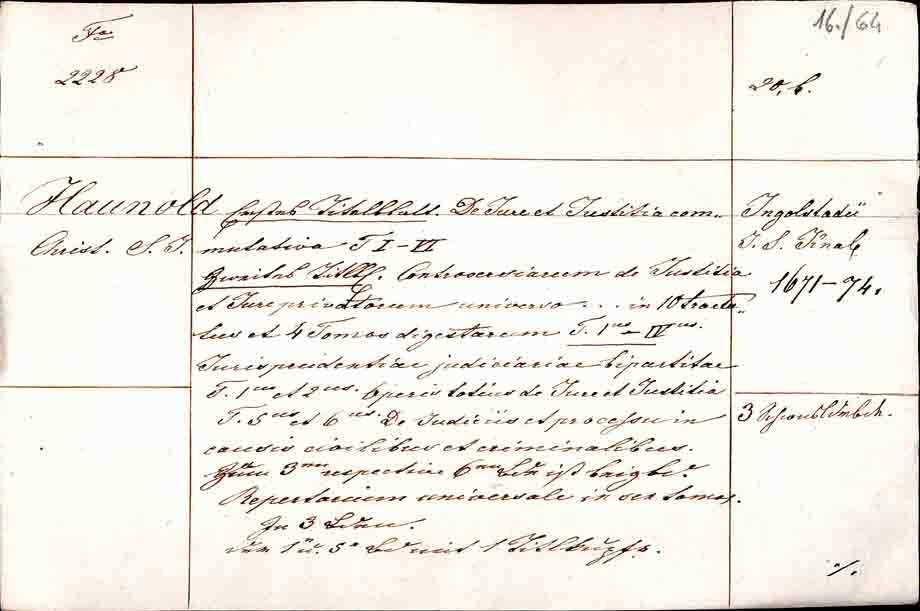 Fa
2228
16./64
20, b.
Haunold
Christ. S. J.
Erstes Titelblatt. De Jure et Justitia com-
mutativa T I–VI
Zweites Titelbl. Controversiarum de Justitia
et Jure privatorum universo ... in 10 tracta-
tus et 4 Tomos digestarum T. 1us–IVus.
Jurisprudentiae judiciariae bipartitae
T. 1us et 2us. Operis totius de Jure et Justitia
T. 5us et 6us. De Judiciis et processu in
causis civilibus et criminalibus.
Zum 3ten respective 6ten Bde ist beigbd.
Repertorium universale in sex tomos.
In 3 Bden.
Der 1 u. 5e Bd mit 1 Titlkupfr.
Ingolstadii
J. S. Knab
1671–74.
3 Schwbldrbde.
./.